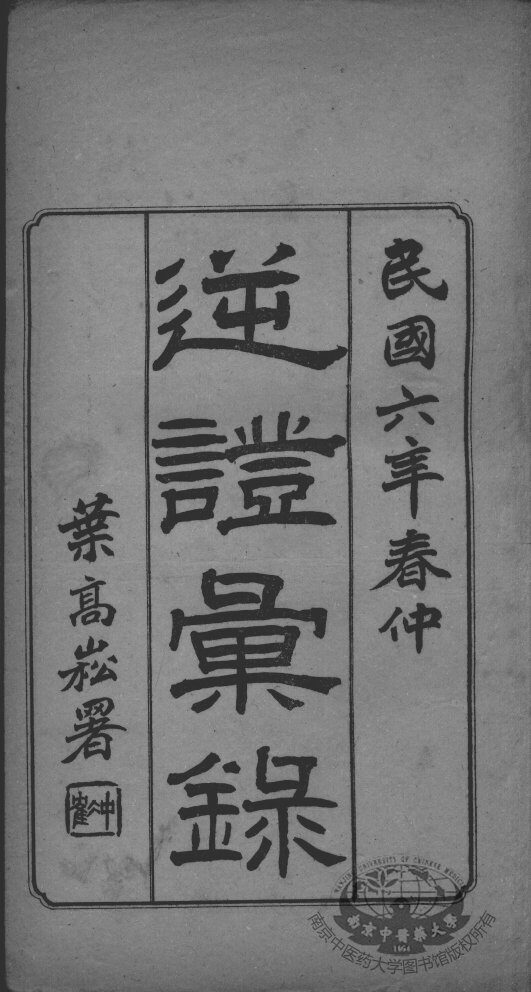 民國六年春仲
逆證彙錄
葉高崧署
NANJING UNIVERSITY OF CHINESE MEDICINE
南京中醫藥大學
1954
南京中医药大学图书馆版权所有